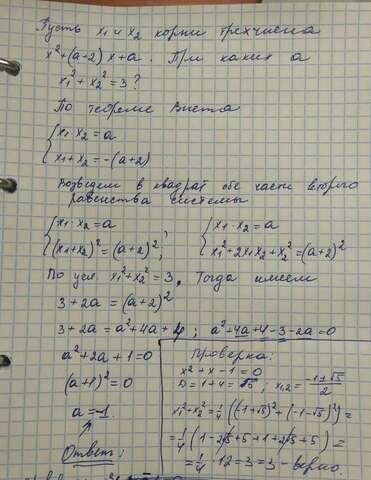 Пусть x₁ и x₂ корни трехчлена
x²+(a+2)x+a. При каких a
x₁²+x₂²=3?
По теореме Виета
{x₁·x₂=a
x₁+x₂=-(a+2)
Возведем в квадрат обе части второго
равенства системы
{x₁·x₂=a ; {x₁·x₂=a
(x₁+x₂)²=(a+2)²; x₁²+2x₁x₂+x₂²=(a+2)²
По усл. x₁²+x₂²=3. Тогда имеем
3+2a=(a+2)²
3+2a=a²+4a+4; a²+4a+4-3-2a=0
a²+2a+1=0
(a+1)²=0
a=-1.
Ответ:
Проверка:
x²+x-1=0
D=1+4=√5; x₁,₂=(-1±√5)/2
x₁²+x₂²=1/4((-1+√5)²+(-1-√5)²)=
=1/4(1-2√5+5+1+2√5+5)=
=1/4·12=3=3-верно.